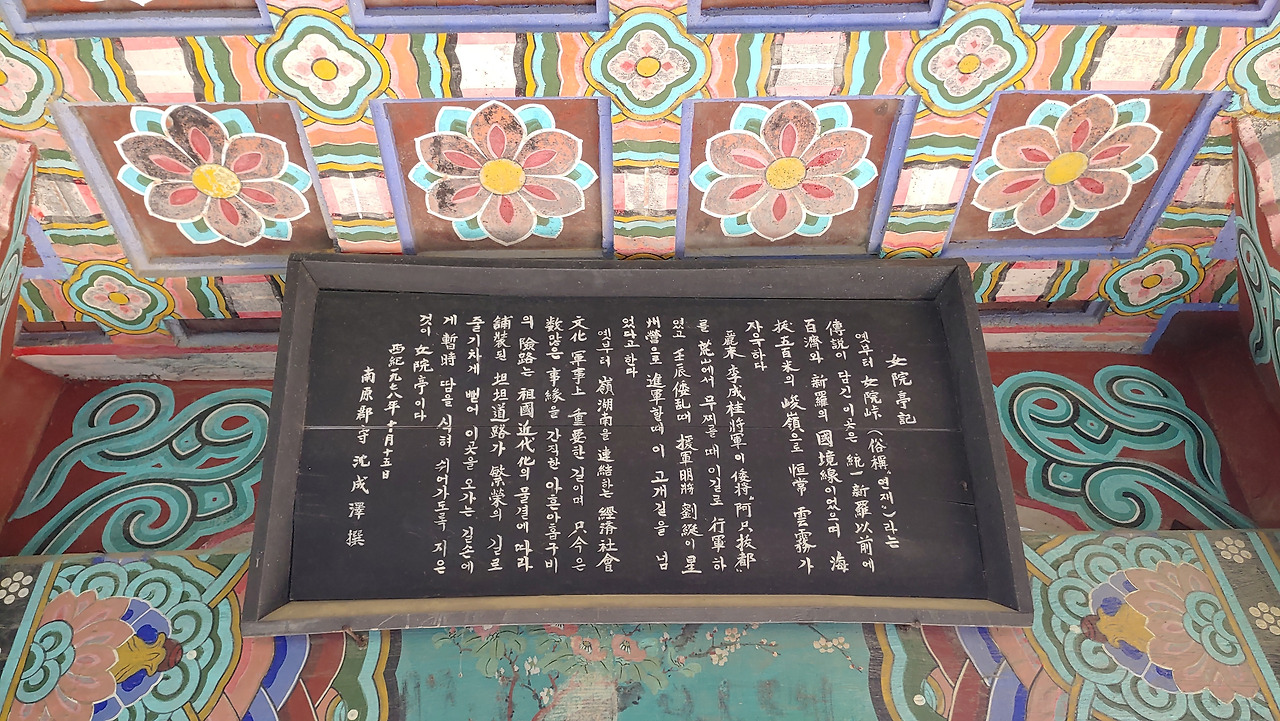 女院亭記
옛부터 女院峙(俗稱,연재)라는
傳說이 담긴 이곳은 統一新羅以前에
百濟와 新羅의 國境線이었으며 海
拔五百米의 峻嶺으로 恒常 雲霧가
자욱하다
麗末 李成桂將軍이 倭將 阿只拔都
를 荒山에서 무찌를때 이길로 行軍하
였고 壬辰倭亂때 援軍明將 劉綎이 星
州營으로 進軍할때 이 고개길을 넘
었다고 한다
옛부터 嶺湖南을 連結하는 經済社會
文化 軍事上 重要한 길이며 只今은
数많은 事緣을 간직한 아흔아홉구비
의 險路는 祖國近代化의 물결에 따라
舖裝된 坦坦道路가 繁榮의 길로
줄기차게 뻗어 이곳을 오가는 길손에
게 暫時 땀을 식혀 쉬어가도록 지은
것이 女院亭이다
西紀 十月十五日
南原郡守 沈成澤 撰